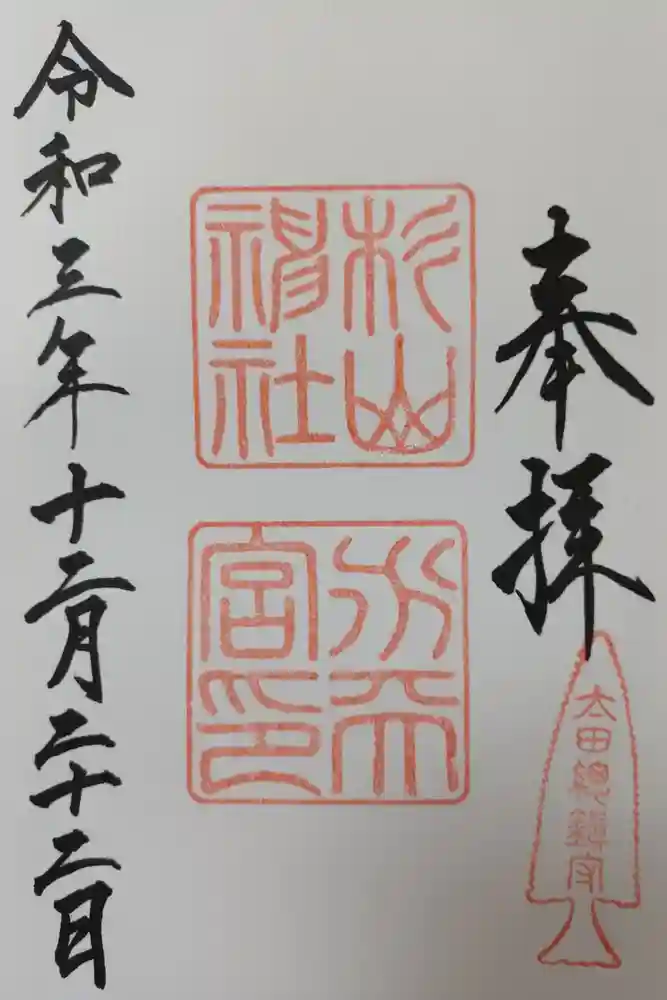 奉拝
太田總鎮守
杉山
神社
水天
宮印
令和三年十二月二十二日